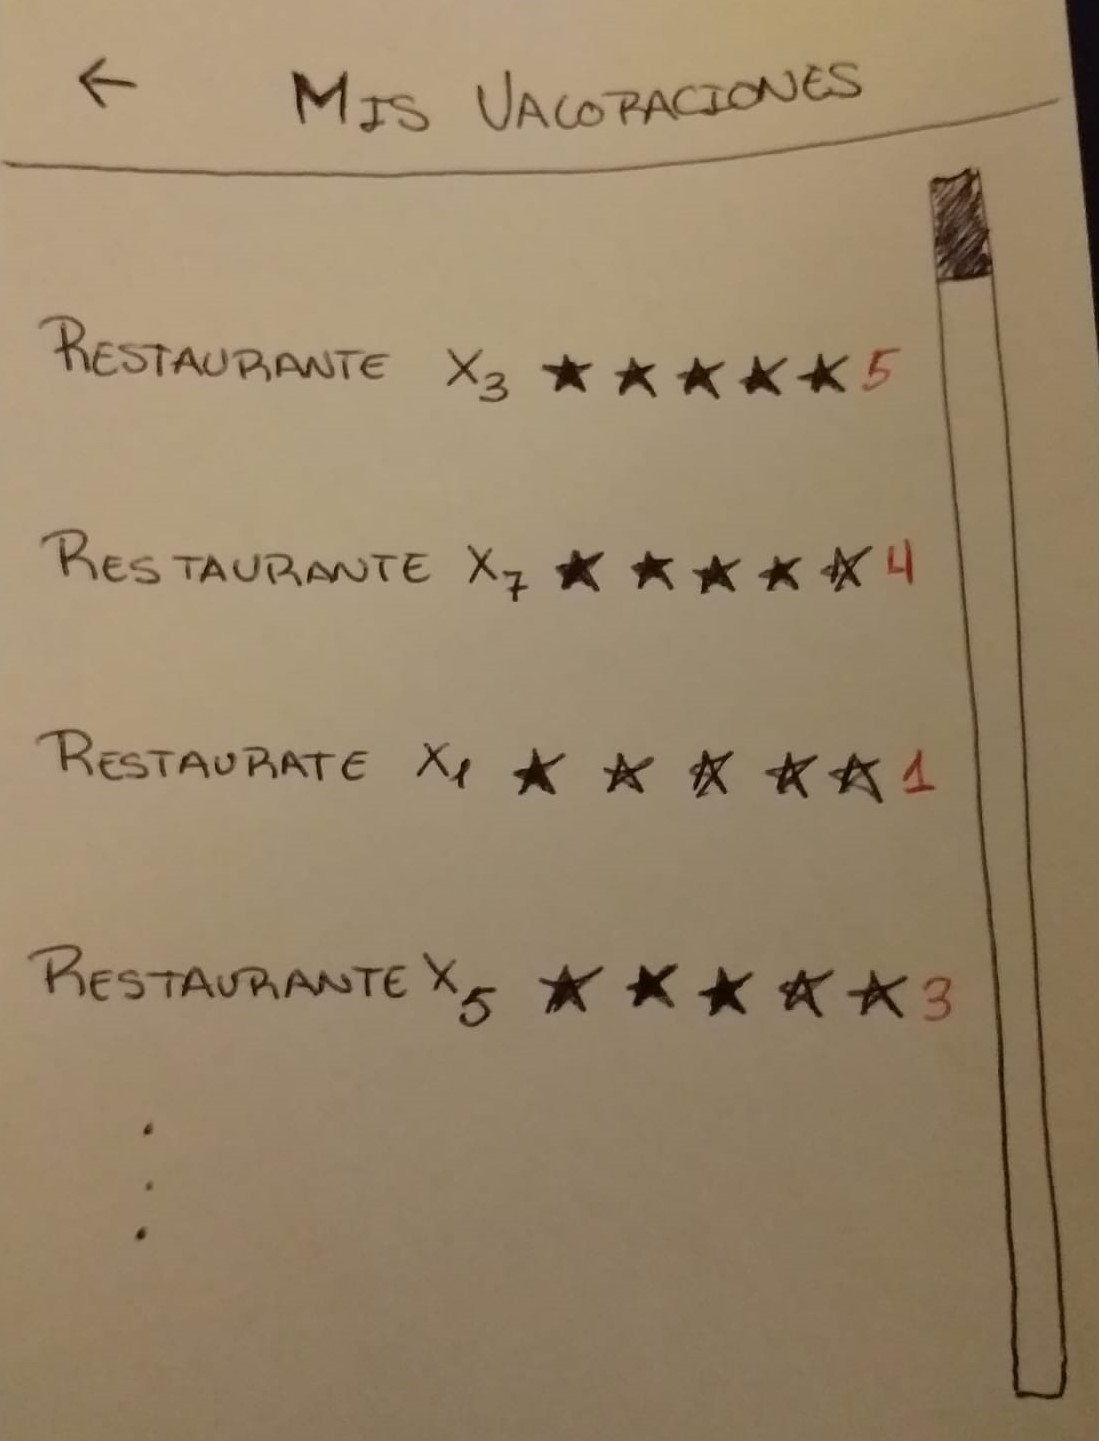 ← MIS VALORACIONES
RESTAURANTE X₃ ★ ★ ★ ★ ★ 5
RESTAURANTE X₇ ★ ★ ★ ★ ☆ 4
RESTAURATE X₁ ★ ☆ ☆ ☆ ☆ 1
RESTAURANTE X₅ ★ ★ ★ ☆ ☆ 3